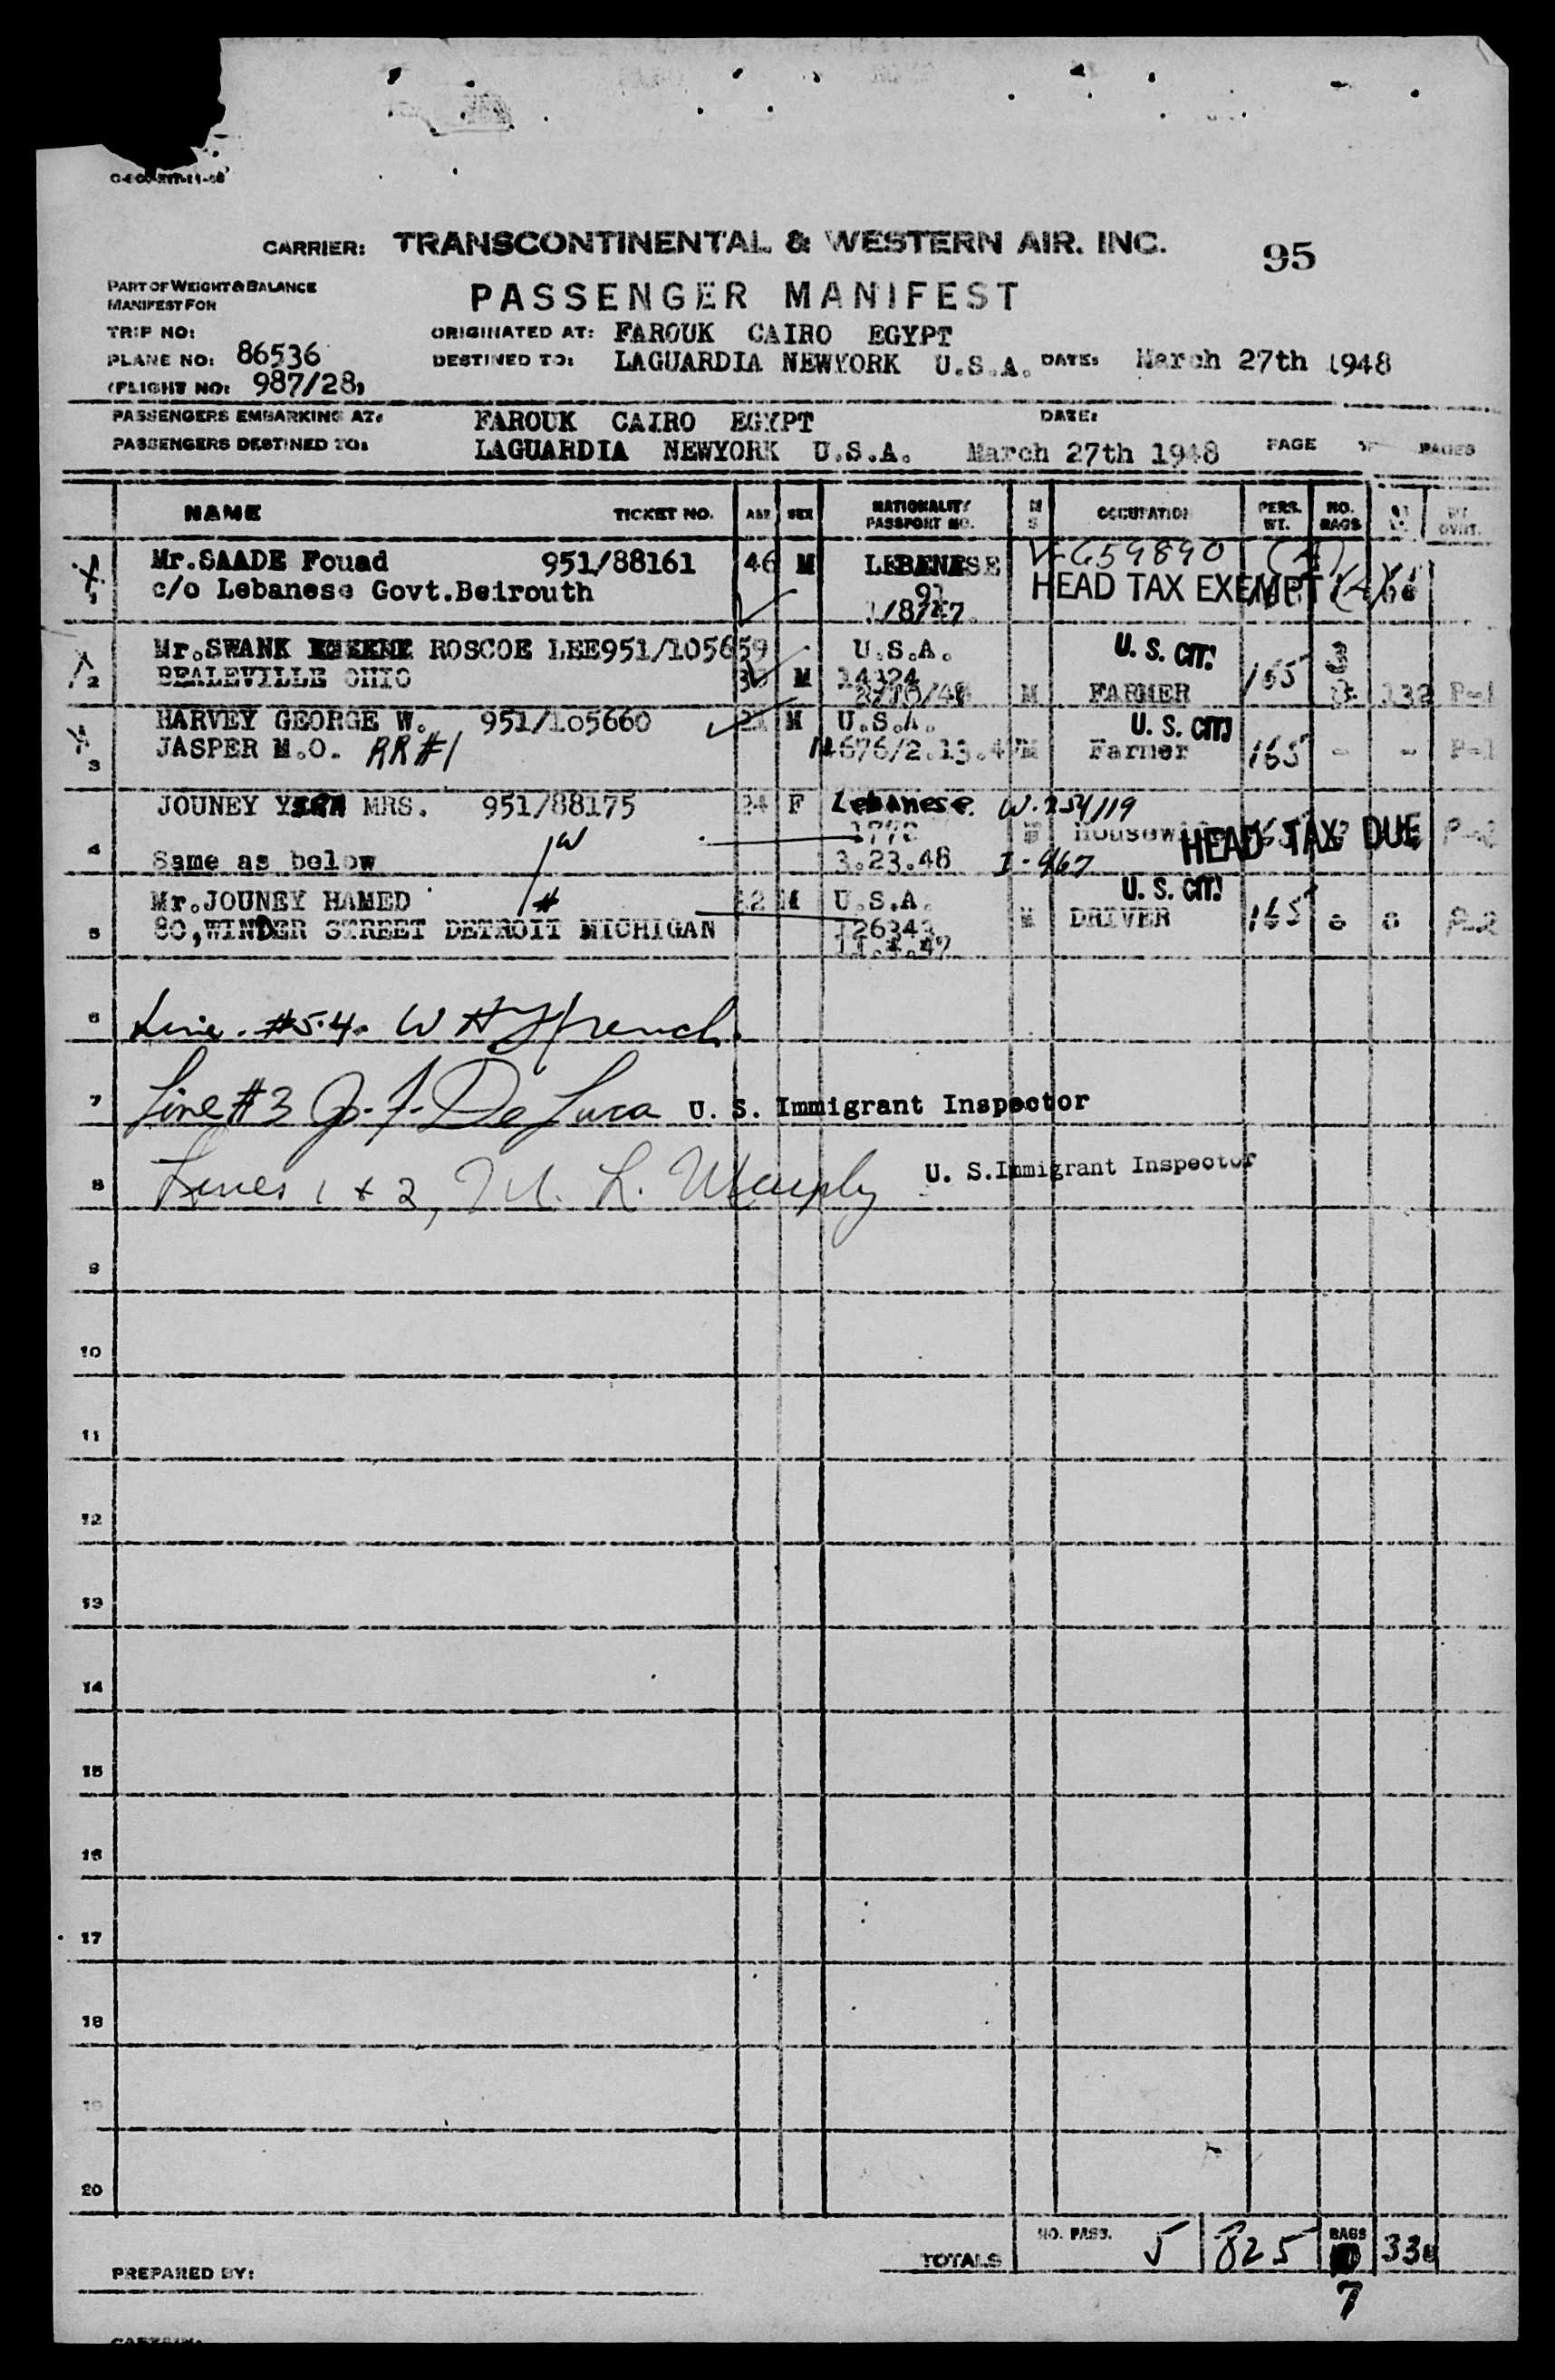 CARRIER: TRANSCONTINENTAL & WESTERN AIR. INC. 95
PART OF WEIGHT & BALANCE
MANIFEST FOR
PASSENGER MANIFEST
TRIP NO: ORIGINATED AT: FAROUK CAIRO EGYPT
PLANE NO: 86536 DESTINED TO: LAGUARDIA NEWYORK U.S.A. DATE: March 27th 1948
(FLIGHT NO: 987/28)
PASSENGERS EMBARKING AT: FAROUK CAIRO EGYPT DATE:
PASSENGERS DESTINED TO: LAGUARDIA NEWYORK U.S.A. March 27th 1948 PAGE PAGES
NAME TICKET NO. AGE SEX NATIONALITY PASSPORT NO. M S OCCUPATION PERS. WT. NO. BAGS
Mr.SAADE Fouad 951/88161 46 M LEBENESE V-659890 (A)
c/o Lebanese Govt.Beirouth 91 HEAD TAX EXEMPT
1/8/47.
Mr.SWANK ROSCOE LEE951/105659 U.S.A. U. S. CIT. 165 3
2 BEALEVILLE OHIO M 14324 M FARMER 132 P-1
HARVEY GEORGE W. 951/105660 21 M U.S.A. U. S. CIT.
3 JASPER M.O. RR#1 14676/2.13.47 M Farmer 165 - - P-1
JOUNEY MRS. 951/88175 24 F Lebanese W-254119
1778 HEAD TAX DUE P-2
4 Same as below W 3.23.48 I-467
Mr.JOUNEY HAMED # M U.S.A. U. S. CIT.
5 80,WINDER STREET DETROIT MICHIGAN 126343 M DRIVER 165 P-2
6 Line. #5.4. W H French
7 Line #3 J. F. De Luca U. S. Immigrant Inspector
8 Lines 1 + 2, M. L. Murphy U. S.Immigrant Inspector
9
10
11
12
13
14
15
16
17
18
19
20
TOTALS NO. PASS. 5 825 BAGS
PREPARED BY: 7